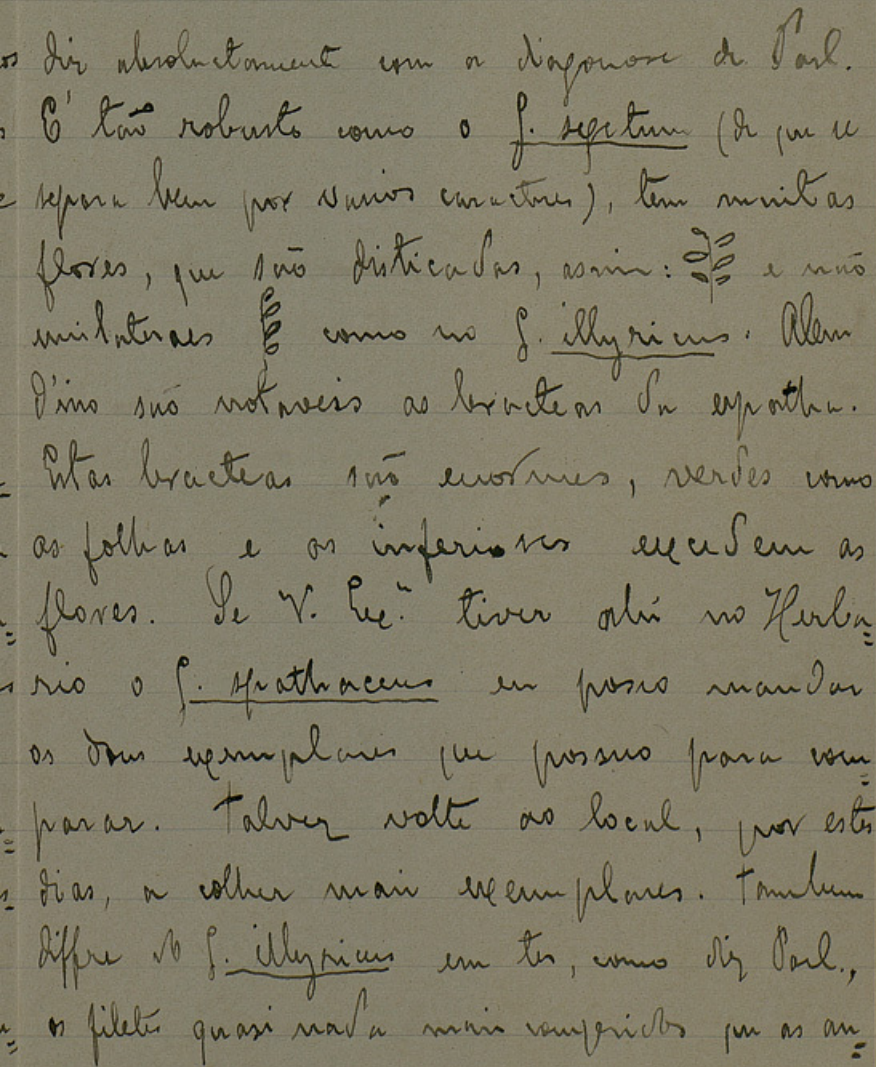 diz absolutamente com a diagnose de Parl.
E' tão robusto como o G. segetum (de que se
separa bem por varios caracteres), tem muitas
flores, que são disticadas, assim: e não
unilateraes como no G. illyricus. Alem
d'isso são notaveis as bracteas da espatha.
Estas bracteas são enormes, verdes como
as folhas e as inferiores excedem as
flores. Se V. Exc.ª tiver ahi no Herba=
rio o G. spathaceus eu posso mandar
os dous exemplares que possuo para com=
parar. Talvez volte ao local, por estes
dias, a colher mais exemplares. Tambem
differe do G. illyricus em ter, como diz Parl.,
os filetes quasi nada mais compridos que as an=